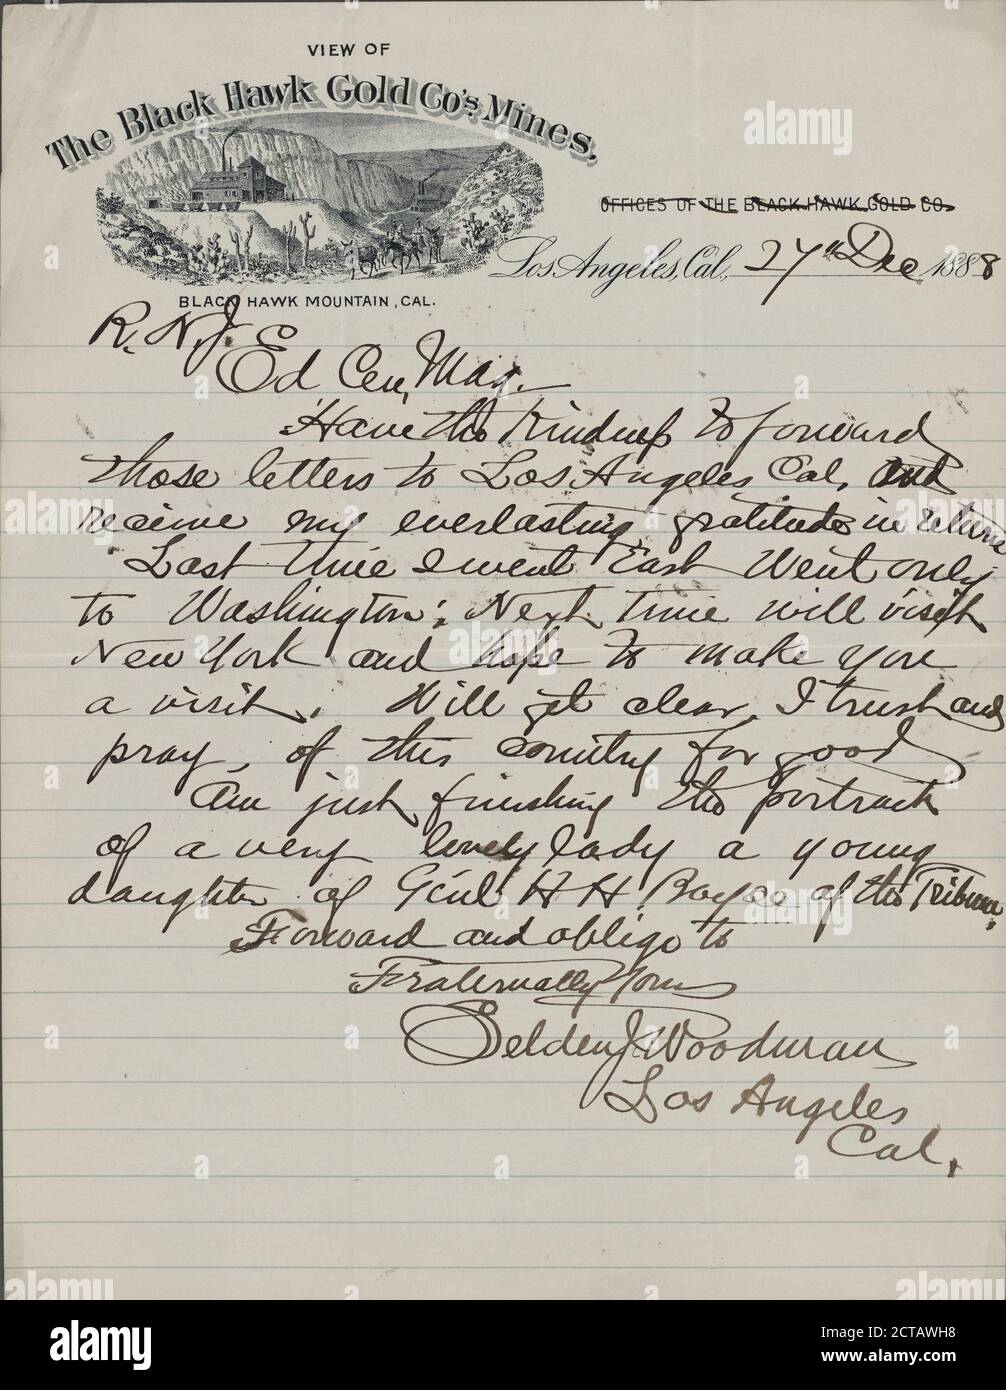 VIEW OF
The Black Hawk Gold Co's Mines,
OFFICES OF THE BLACK HAWK GOLD CO.
Los Angeles, Cal., 27th Dec 1888
BLACK HAWK MOUNTAIN, CAL.
R. N. J.
Ed Cen, Mag.
Have the Kindness to forward
those letters to Los Angeles Cal, and
receive my everlasting gratitude in return
Last time I went East Went only
to Washington; Next time will visit
New York and hope to make you
a visit. Will get clear, I trust and
pray, of this country for good
Am just finishing the portrait
of a very lovely lady a young
daughter of Genl H H Boyce of the Tribune,
Forward and oblige to
Fraternally Yours
Selden J. Woodman
Los Angeles
Cal.
alamy
Image ID: 2CTAWH8
www.alamy.com